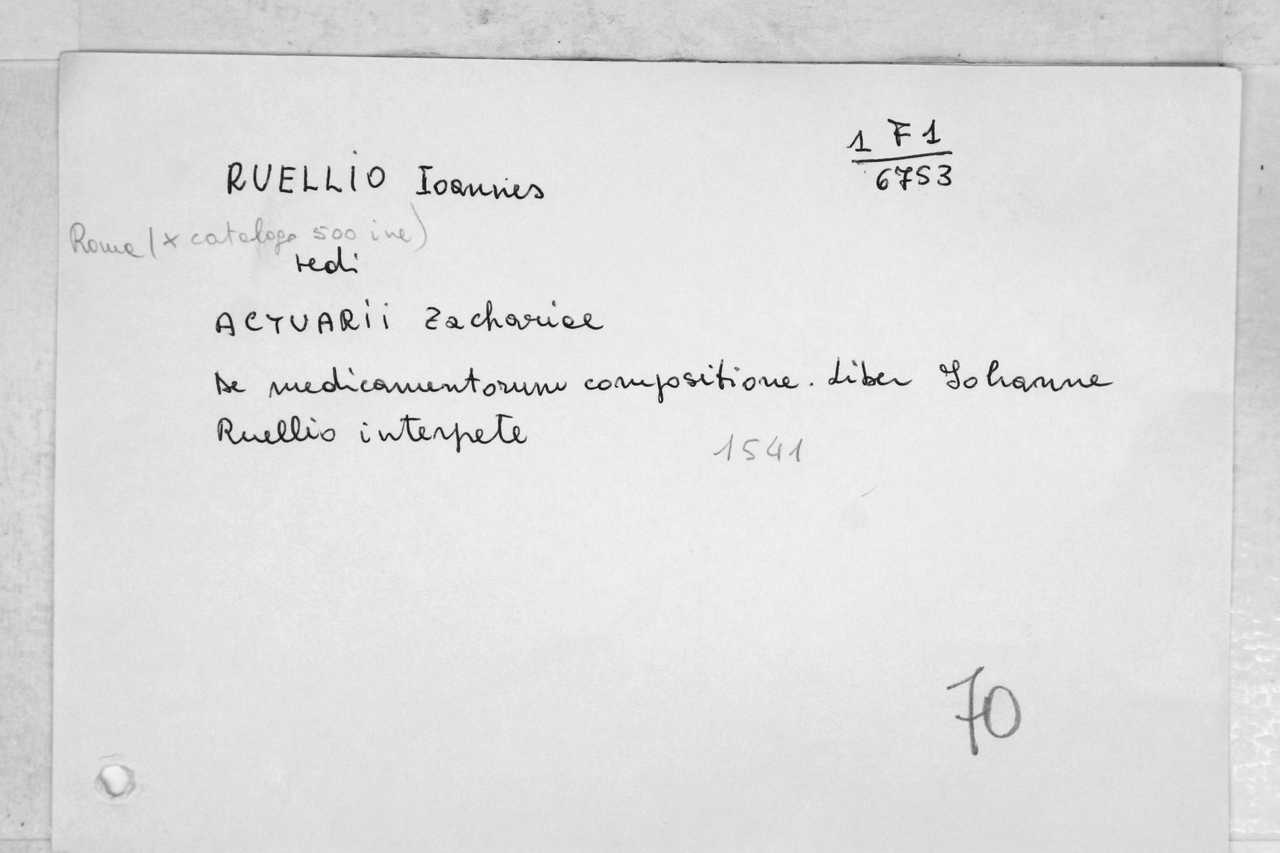 1 F 1
6753
RUELLIO Ioannes
Roma (x catalogo 500 ine)
vedi
ACTUARII Zachariae
De medicamentorum compositione. Liber Johanne
Ruellio interpete
1541
70